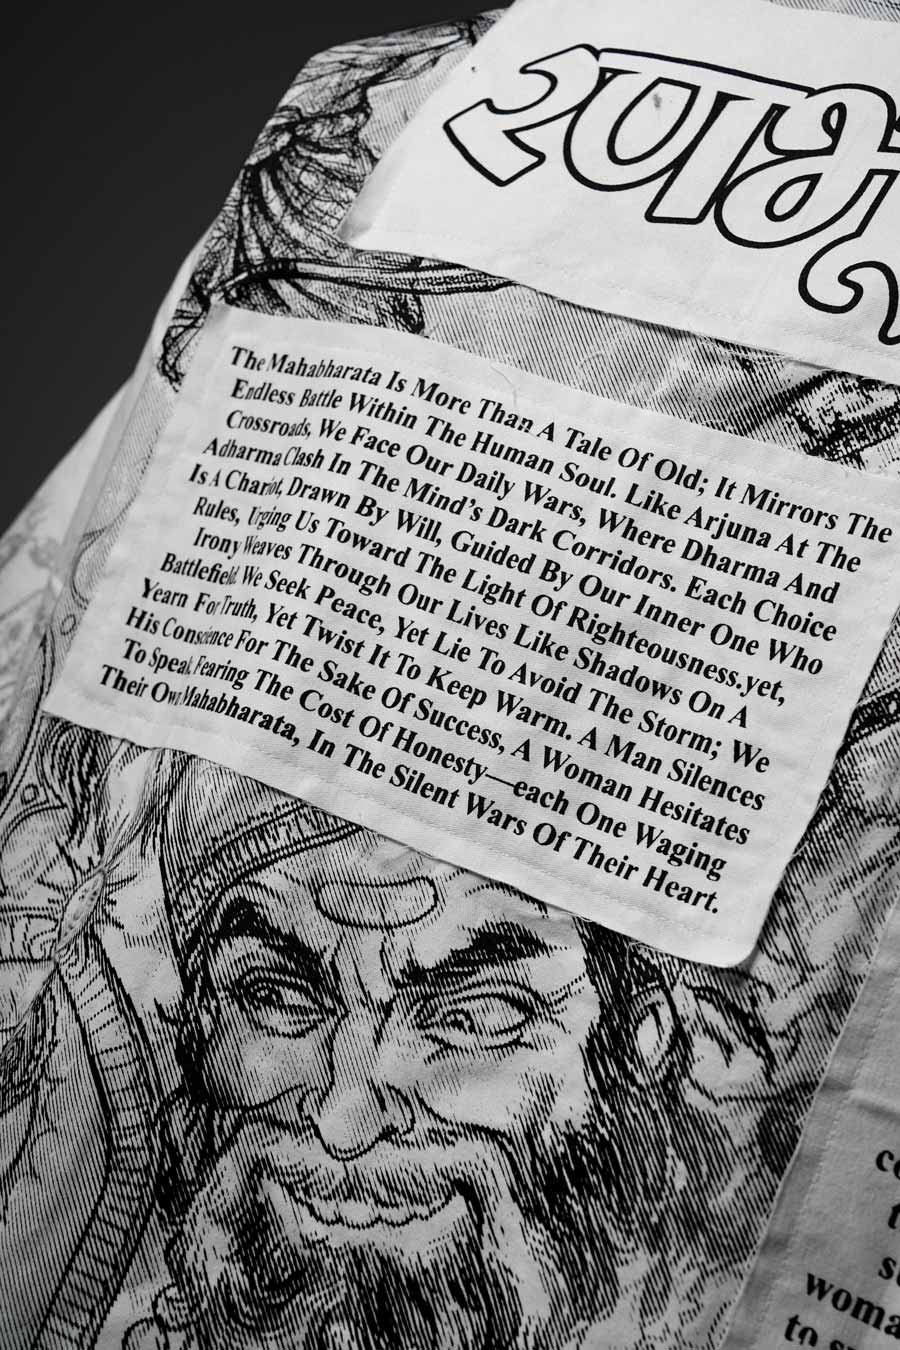 रणभू
The Mahabharata Is More Than A Tale Of Old; It Mirrors The
Endless Battle Within The Human Soul. Like Arjuna At The
Crossroads, We Face Our Daily Wars, Where Dharma And
Adharma Clash In The Mind's Dark Corridors. Each Choice
Is A Chariot, Drawn By Will, Guided By Our Inner One Who
Rules, Urging Us Toward The Light Of Righteousness.yet,
Irony Weaves Through Our Lives Like Shadows On A
Battlefield. We Seek Peace, Yet Lie To Avoid The Storm; We
Yearn For Truth, Yet Twist It To Keep Warm. A Man Silences
His Conscience For The Sake Of Success, A Woman Hesitates
To Speak, Fearing The Cost Of Honesty—each One Waging
Their Own Mahabharata, In The Silent Wars Of Their Heart.
woma
to